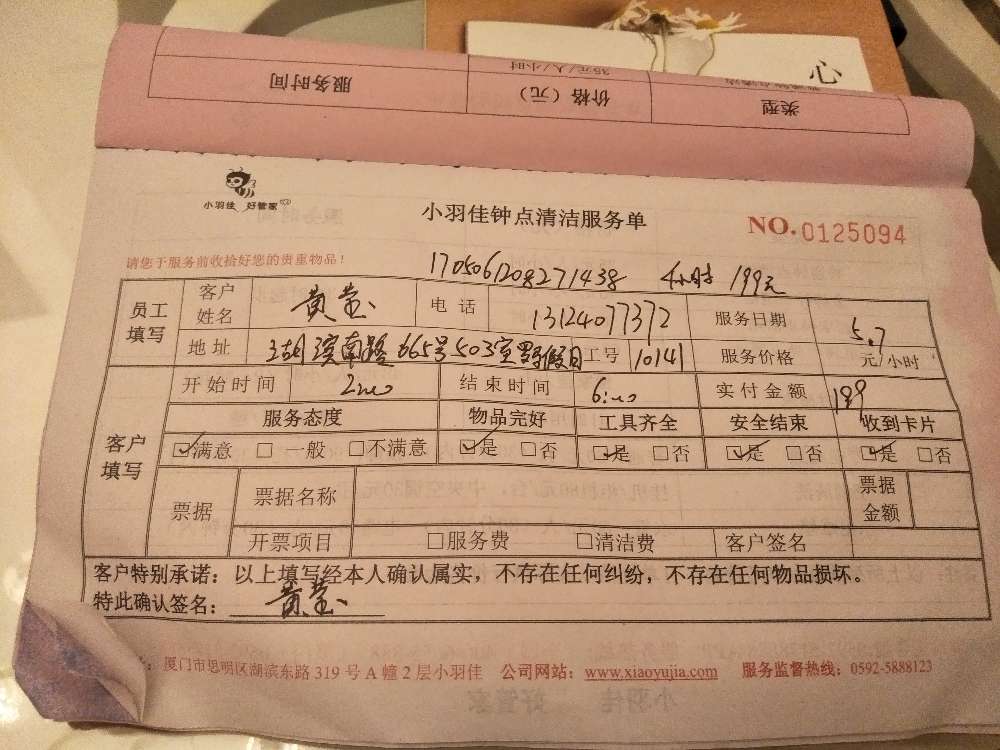 心
35元/人/小时
类型 价格（元） 服务时间
小羽佳 好管家
小羽佳钟点清洁服务单
NO.0125094
请您于服务前收拾好您的贵重物品！
1705061208271438 4小时 199元
员工填写 客户姓名 黄莹 电话 13124077372 服务日期 5.7
地址 湖滨南路665号503室 假日 工号 10141 服务价格 元/小时
客户填写 开始时间 2:00 结束时间 6:00 实付金额 199
服务态度 物品完好 工具齐全 安全结束 收到卡片
☑满意 □一般 □不满意 ☑是 □否 ☑是 □否 ☑是 □否 ☑是 □否
票据 票据名称 票据金额
开票项目 □服务费 □清洁费 客户签名
客户特别承诺：以上填写经本人确认属实，不存在任何纠纷，不存在任何物品损坏。
特此确认签名：黄莹
：厦门市思明区湖滨东路319号A幢2层小羽佳 公司网站：www.xiaoyujia.com 服务监督热线：0592-5888123